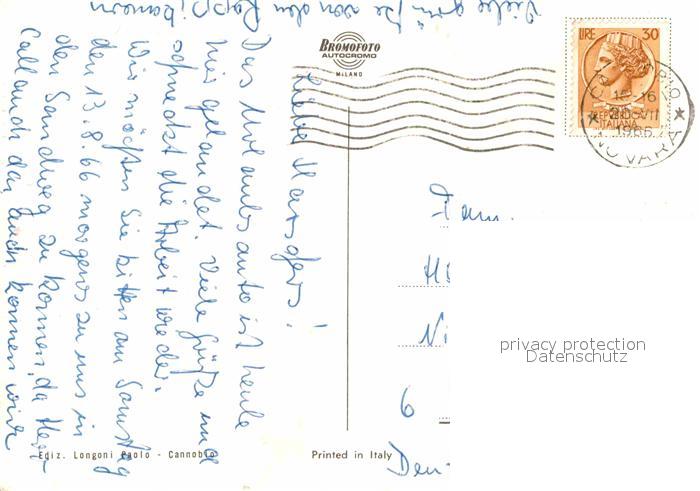 Viele Grüße von den
Liebe
Das Urlaubsauto ist heute
hier gelandet. Viele Grüße und
schmeckt die Arbeit wieder.
Wir möchten Sie bitten am Samstag
den 13.8.66 morgens zu uns in
den Sandweg zu kommen, da Herr
auch da, auch kommen wird
BROMOFOTO
AUTOCROMO
MILANO
LIRE 30
REPUBBLICA
ITALIANA
15-16
1966
NOVARA
Fam.
Hö
Ni
6
Den-
privacy protection
Datenschutz
Ediz. Longoni Paolo - Cannobio
Printed in Italy